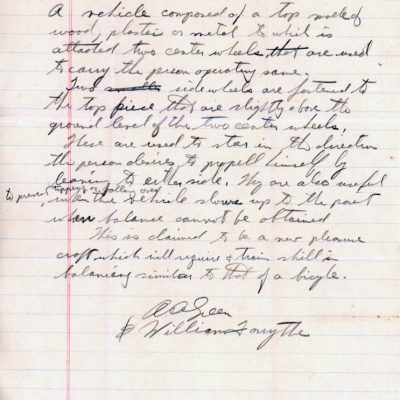 A vehicle composed of a top made of
wood, plastic or metal to which is
attached two center wheels that are used
to carry the person operating same.
Two side wheels are fastened to
the top piece that are slightly above the
ground level of the two center wheels.
These are used to stear in the direction
the person desires to propell himself by
leaning to either side. They are also useful
to prevent tipping or falling over
when the vehicle slows up to the point
when balance cannot be obtained
This is claimed to be a new pleasure
craft which will require & train skill in
balancing similar to that of a bicycle.
A A Green
& William Forsythe